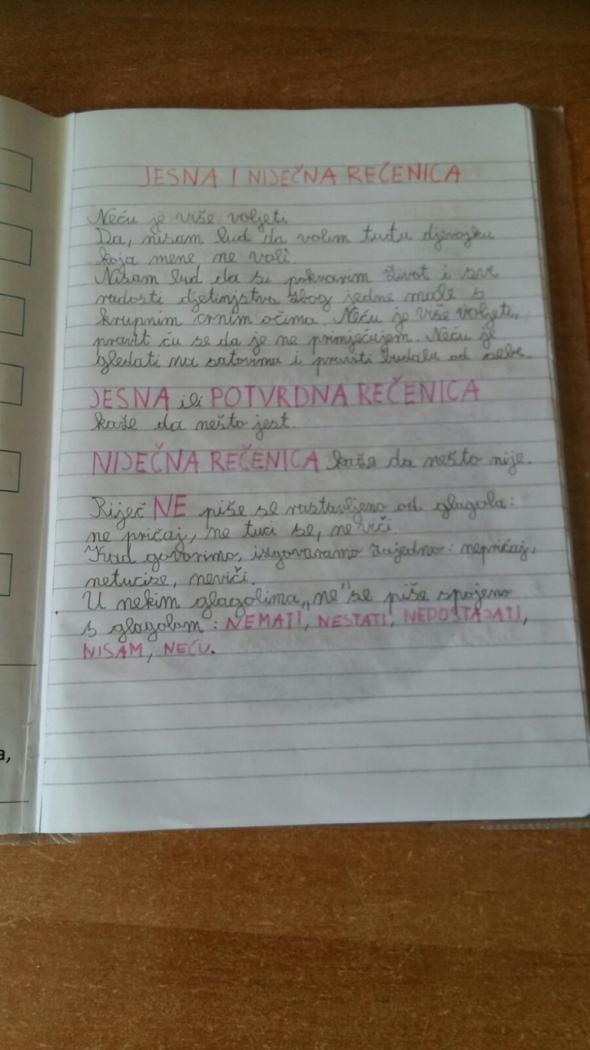 JESNA I NIJEČNA REČENICA
Neću je više voljeti
Da, nisam lud da volim tuđu djevojku
koja mene ne voli.
Nisam lud da si pokvarim život i sve
radosti djetinjstva zbog jedne male s
krupnim crnim očima. Neću je više voljeti,
pravit ću se da je ne primjećujem. Neću je
gledati na satovima i praviti budalu od sebe.
JESNA ili POTVRDNA REČENICA
kaže da nešto jest.
NIJEČNA REČENICA kaže da nešto nije.
Riječ NE piše se rastavljeno od glagola:
ne pričaj, ne tuci se, ne viči.
Kad govorimo, izgovaramo zajedno: nepričaj,
netucise, neviči.
U nekim glagolima „ne" se piše spojeno
s glagolom: NEMATI, NESTATI, NEDOSTAJATI,
NISAM, NEĆU.
a,